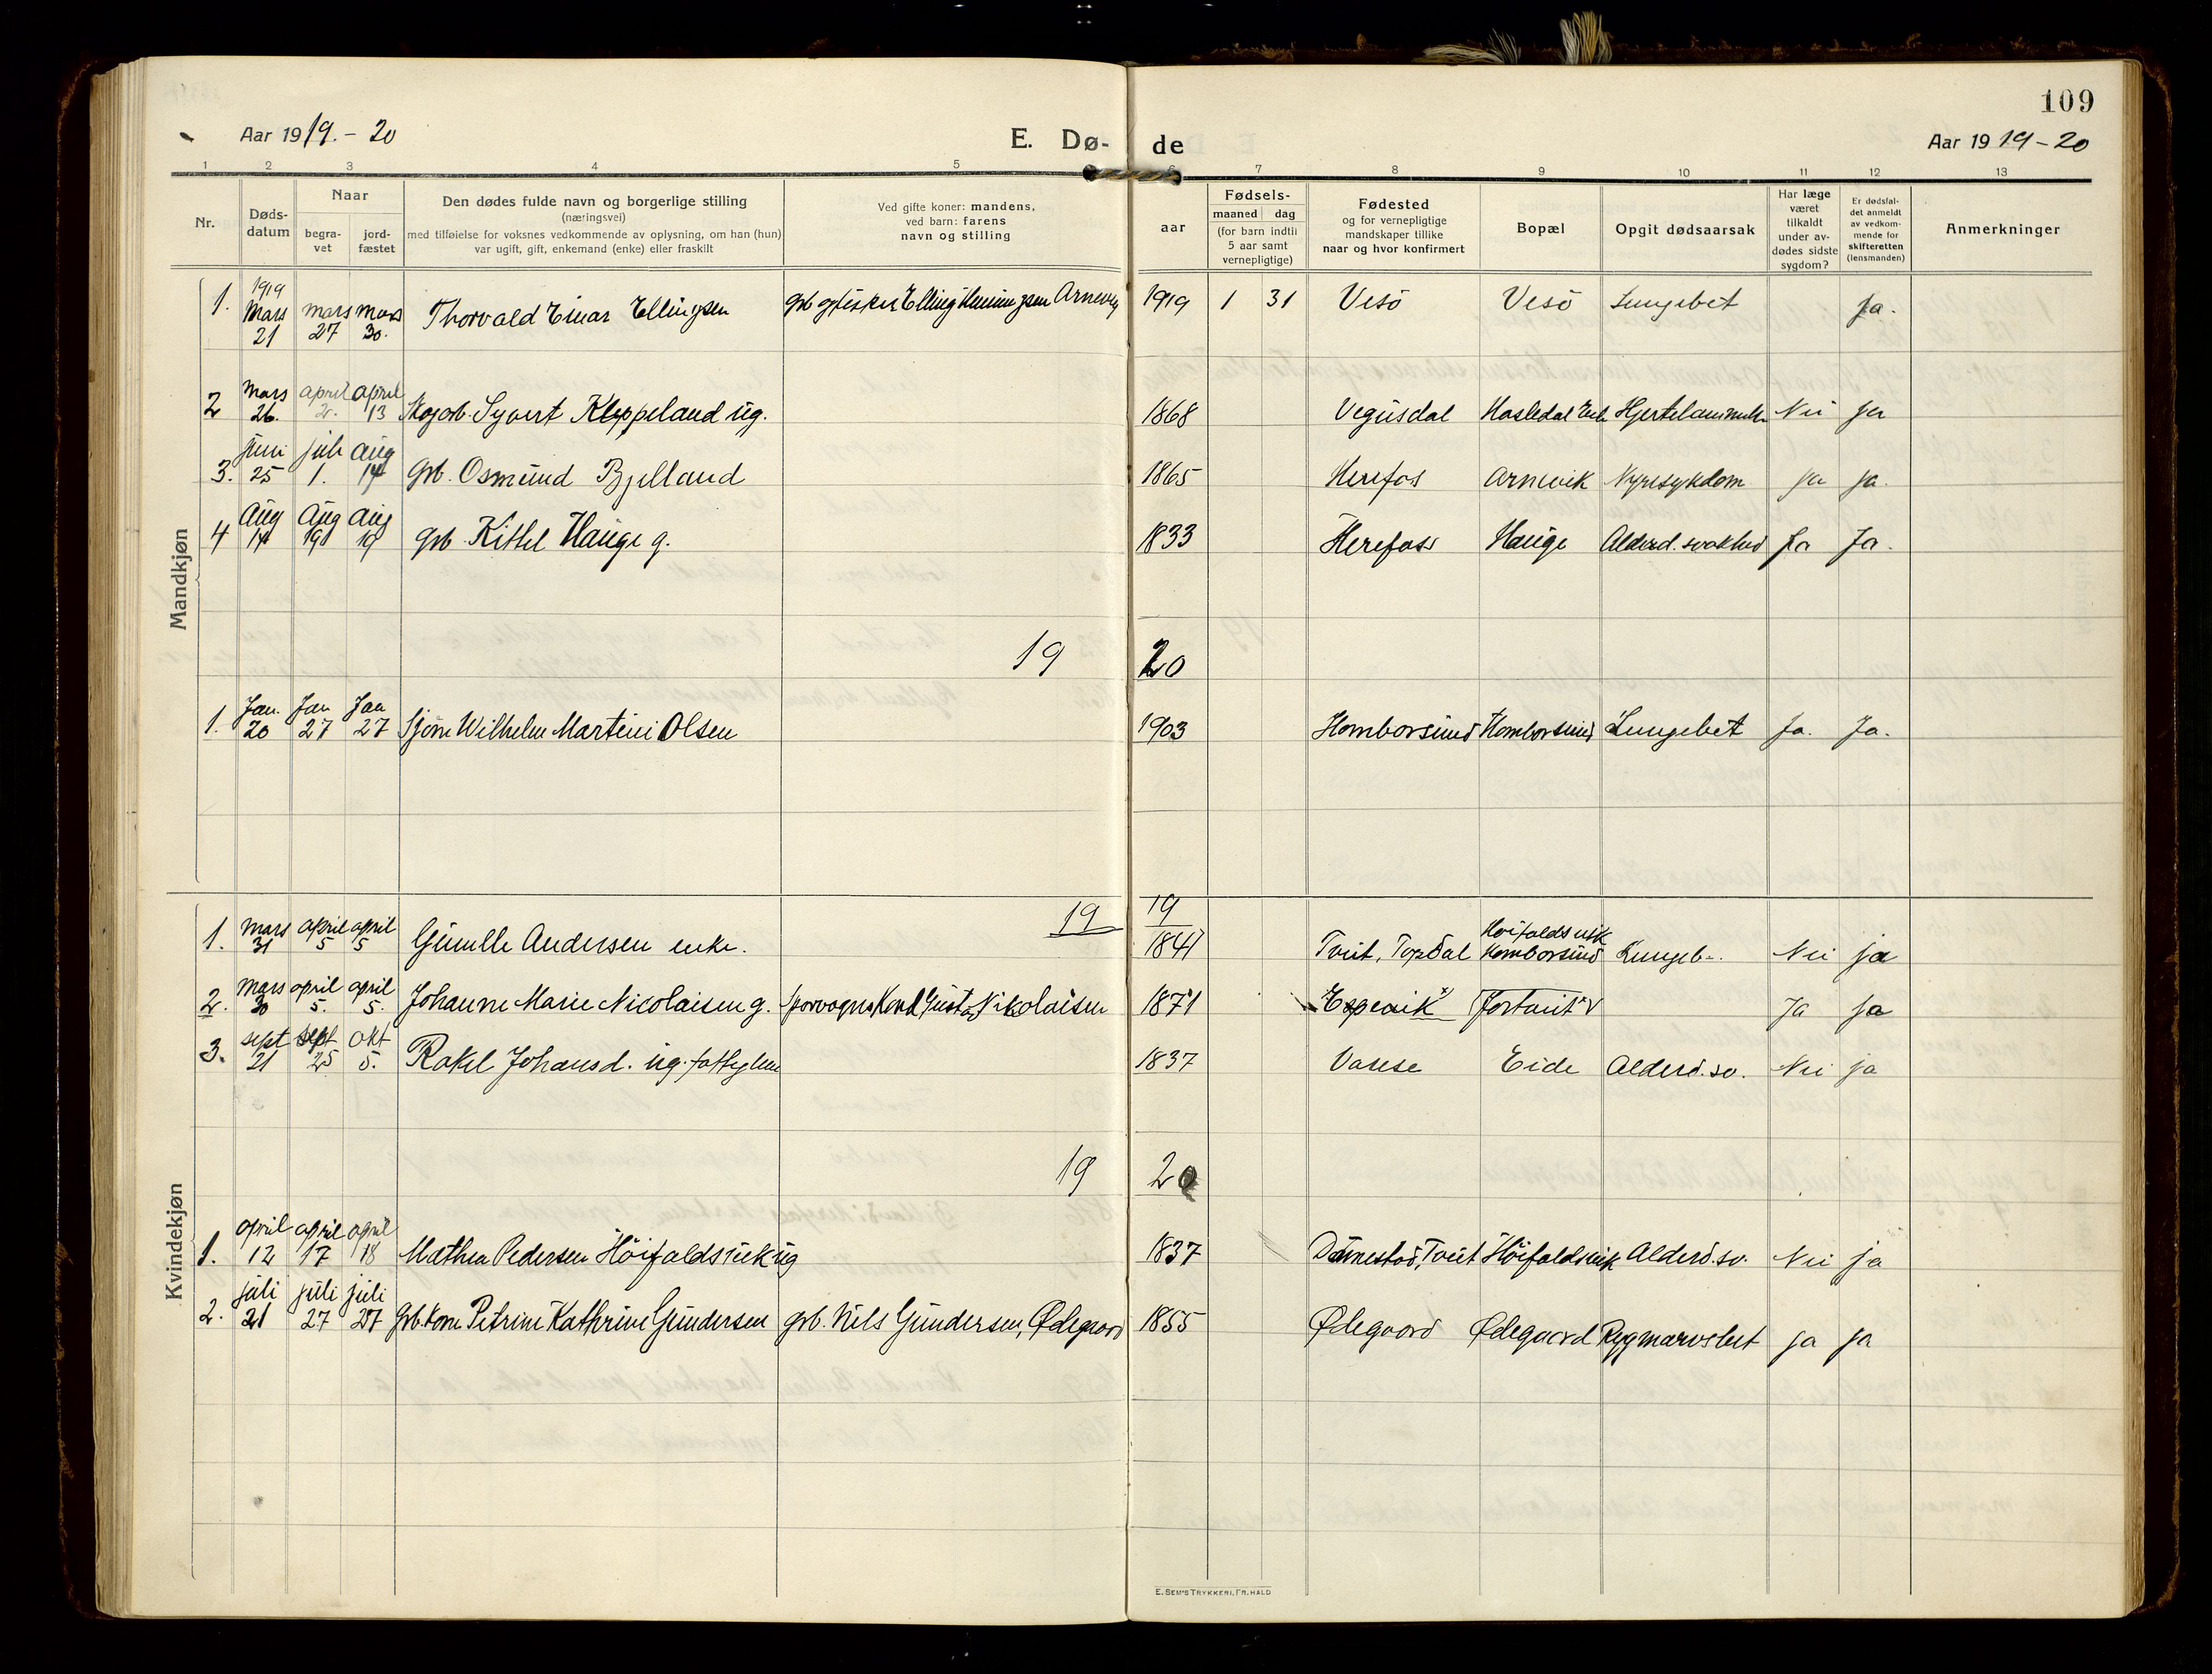 109
Aar 1919.-20
E. Dø-de
Aar 1919-20
1 2 3 4 5 6 7 8 9 10 11 12 13
Nr.
Døds-
datum
Naar
begra-
vet
jord-
fæstet
Den dødes fulde navn og borgerlige stilling
(næringsvei)
med tilføielse for voksnes vedkommende av oplysning, om han (hun)
var ugift, gift, enkemand (enke) eller fraskilt
Ved gifte koner: mandens,
ved barn: farens
navn og stilling
aar
Fødsels-
maaned dag
(for barn indtil
5 aar samt
vernepligtige)
Fødested
og for vernepligtige
mandskaper tillike
naar og hvor konfirmert
Bopæl
Opgit dødsaarsak
Har læge
været
tilkaldt
under av-
dødes sidste
sygdom?
Er dødsfal-
det anmeldt
av vedkom-
mende for
skifteretten
(lensmanden)
Anmerkninger
Mandkjøn
1919
1. Mars 21 mars 27 mars 30. Thorvald Einar Ellingsen Elling Arnevig 1919 1 31 Vesö Vesö Lungebet Ja.
2 Mars 26. april 2. april 13 Syvert Kleppeland ug. 1868 Vegusdal Hasledal Nei ja
3. juni 25 juli 1. aug 14 Grb. Osmund Bjelland 1865 Herefos Arnevik Nyresykdom ja ja.
4 Aug 14 Aug 19 Aug 19 grb. Kittel Hauge g. 1833 Herefoss Hauge Alderd. svakhed Ja Ja.
19 20
1. Jan. 20 Jan 27 Jan 27 Wilhelm Martini Olsen 1903 Homborsund Homborsund Lungebet Ja. Ja.
Kvindekjøn
19 19
1. Mars 31 april 5 april 5 Gunille Andersen enke. 1841 Tveit, Topdal Höifaldsvik Homborsund Lungeb-. Nei ja
2. Mars 30 april 5. april 5. Johanne Marie Nicolaisen g. Gustav Nikolaisen 1871 Espevik Ja ja
3. sept 21 sept 25 okt 5. Rakel Johansd. ug. fattiglem 1837 Vanse Eide Alderd.sv. Nei ja
19 20
1. april 12 april 17 april 18 Mathea Pedersen Höifaldsvik ug 1837 Dönnestad, Tveit Höifaldsvik Alderd.sv. Nei ja
2. juli 21 juli 27 juli 27 Grb. kone Petrine Kathrine Gundersen grb. Nils Gundersen, Ødegaard 1855 Ødegaard Ødegaard Rygmarvsbet ja ja
E. SEM'S TRYKKERI, FR. HALD